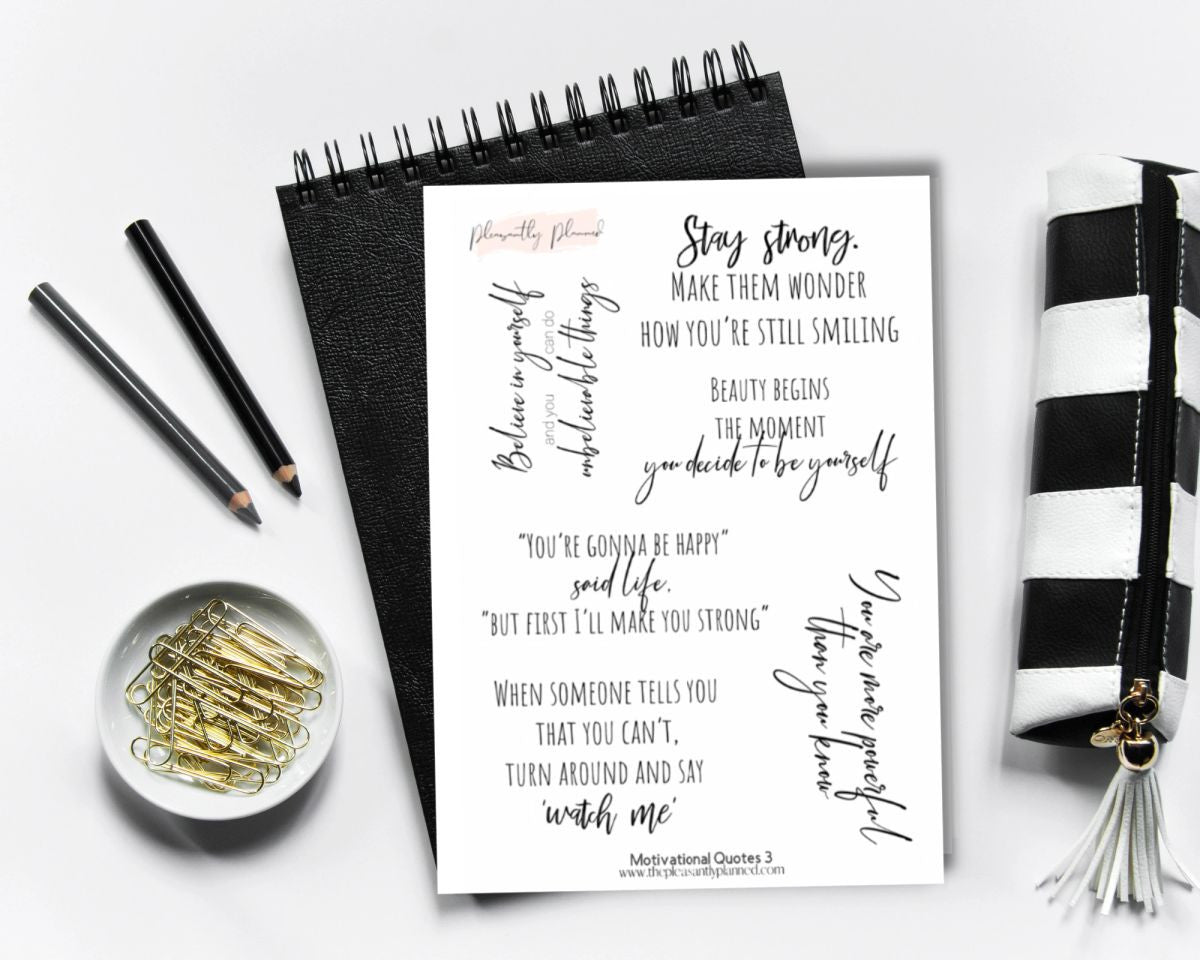 Pleasantly Planned
Believe in yourself
and you can do
unbelievable things
Stay strong.
MAKE THEM WONDER
HOW YOU'RE STILL SMILING
BEAUTY BEGINS
THE MOMENT
you decide to be yourself
"YOU'RE GONNA BE HAPPY"
said life,
"BUT FIRST I'LL MAKE YOU STRONG"
WHEN SOMEONE TELLS YOU
THAT YOU CAN'T,
TURN AROUND AND SAY
'watch me'
You are more powerful
than you know
Motivational Quotes 3
www.thepleasantlyplanned.com